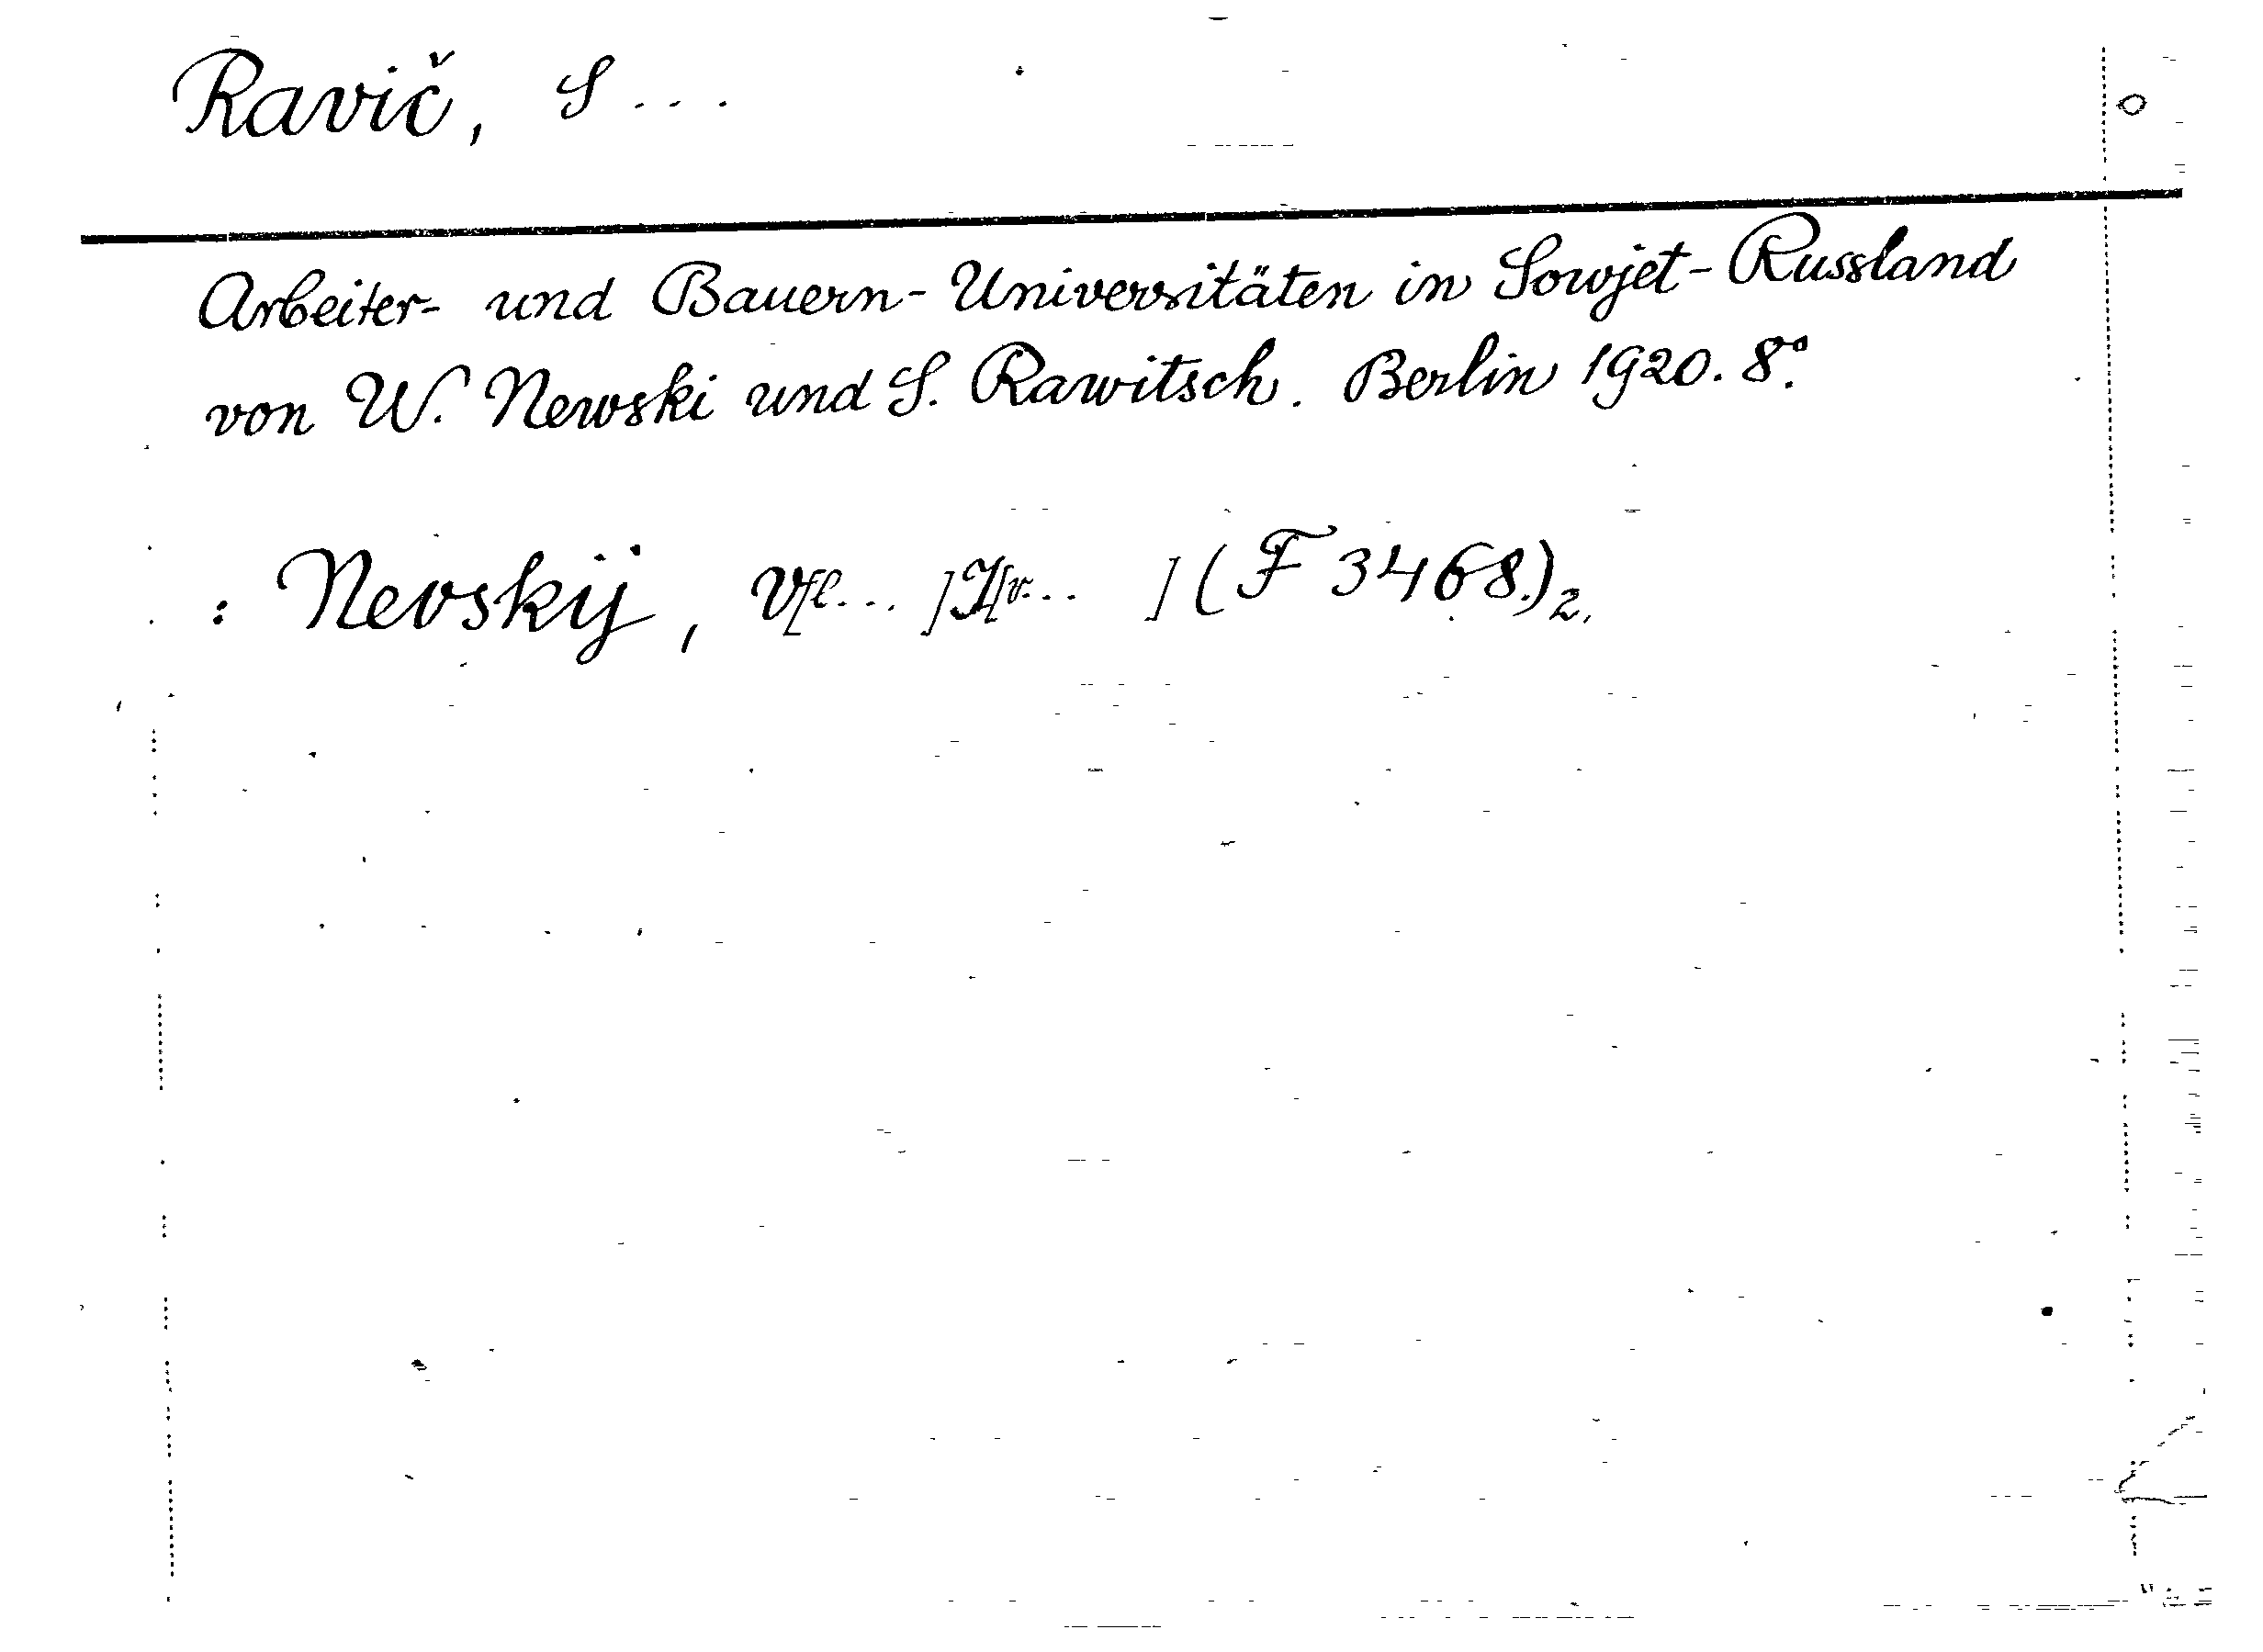 Ravič, S...
Arbeiter- und Bauern-Universitäten in Sowjet-Russland
von W. Newski und S. Rawitsch. Berlin 1920. 8°.
: Nevskij, V[l... ] I[v... ] (F 3468.)2.